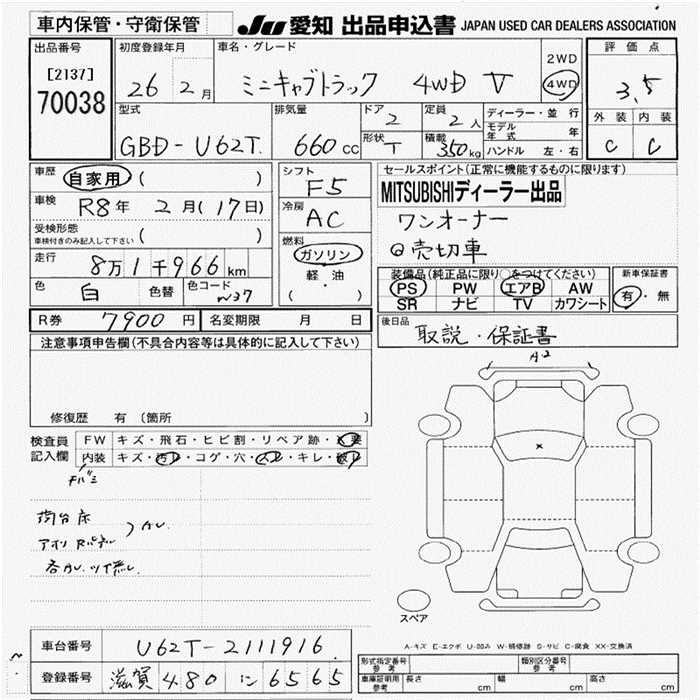 車内保管・守衛保管 JU 愛知 出品申込書 JAPAN USED CAR DEALERS ASSOCIATION
出品番号 初度登録年月 車名・グレード 2WD 評価点
[2137] 26年 2月 ミニキャブトラック 4WD V 4WD 3.5
70038
型式 排気量 ドア 2 定員 2人 ディーラー・並行 外装 内装
GBD-U62T 660cc 形状 T 積載 350kg モデル年式 年 C C
ハンドル 左・右
車歴 自家用 ( ) シフト F5 セールスポイント(正常に機能するものに限ります)
車検 R8年 2月(17日) 冷房 AC MITSUBISHIディーラー出品
受検形態 ( ) ワンオーナー
車検付きのみ記入して下さい 燃料 ガソリン 売切車
走行 8万1千966km 軽油
色 白 色替 色コード W37 ( ・ )
装備品(純正品に限り○をつけてください) 新車保証書
PS PW エアB AW 有・無
SR ナビ TV カワシート
R券 7900円 名変期限 月 日 後日品 取説・保証書
注意事項申告欄(不具合内容等は具体的に記入して下さい) A-2
修復歴 有 (箇所 )
検査員 FW キズ・飛石・ヒビ割・リペア跡・X要
記入欄 内装 キズ・汚れ・コゲ・穴・スレ・キレ・破れ
荷台床
スペア
A-キズ E-エクボ U-凹み W-補修跡 S-サビ C-腐食 XX-交換済
車台番号 U62T-2111916
登録番号 滋賀 480 に 6565
形式指定番号 参考 類別区分番号 参考
車庫証明用 参考 長さ cm 幅 cm 高さ cm